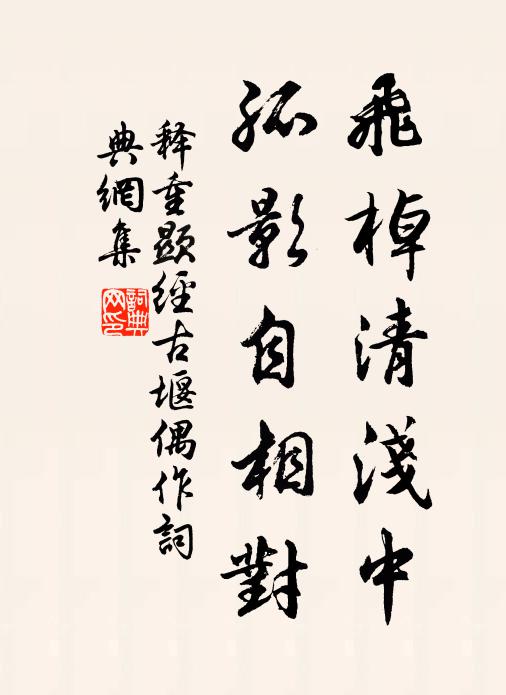 飛棹清淺中
孤影自相對
释重顯經古堰偶作詞
典網集
詞典
网印